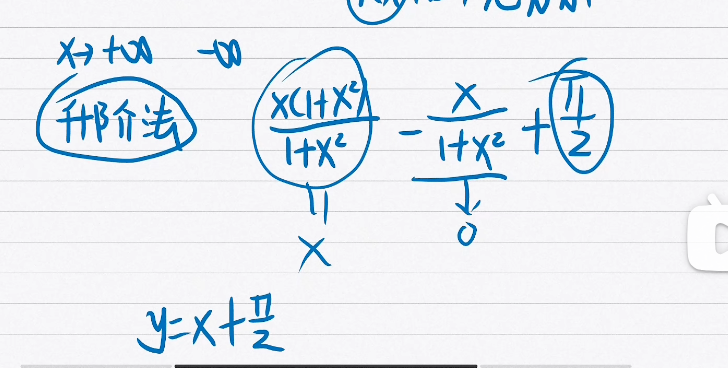 x→+∞ -∞
升阶法
x(1+x²)/1+x² - x/1+x² + π/2
= x
↓ 0
y=x+π/2